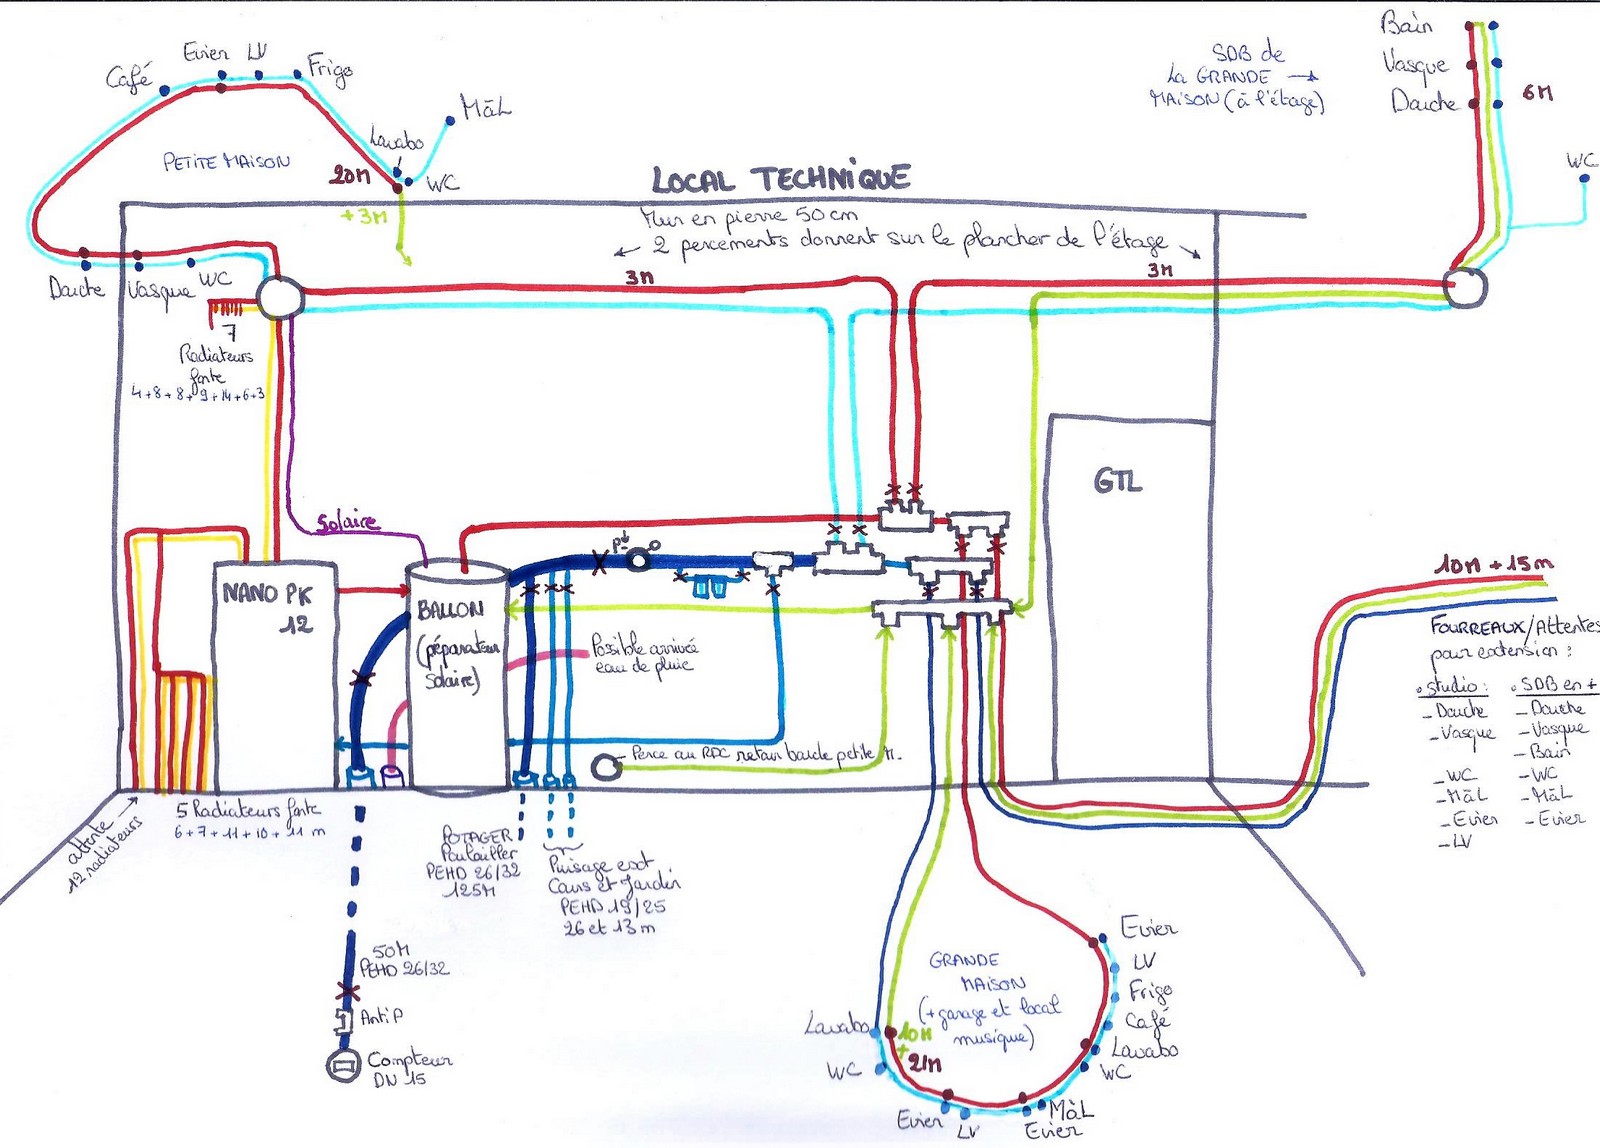 Evier LV
Café
Frigo
MàL
Lavabo
PETITE MAISON
20M
WC
+3M
Douche
Vasque
WC
SDB de
La GRANDE →
MAISON (à l'étage)
Bain
Vasque
Douche
6M
WC
LOCAL TECHNIQUE
Mur en pierre 50 cm
2 percements donnent sur le plancher de l'étage
3M
3M
7
Radiateurs
fonte
4+8+8+9+14+6+3
Solaire
GTL
NANO PK
12
BALLON
(préparateur
solaire)
P
Possible arrivée
eau de pluie
Perce au RDC retour boucle petite M.
10M + 15m
FOURREAUX/Attentes
pour extension :
• studio :
- Douche
- Vasque
- WC
- MàL
- Evier
- LV
• SDB en +
- Douche
- Vasque
- Bain
- WC
- MàL
- Evier
attente →
12 radiateurs
5 Radiateurs fonte
6+7+11+10+11 m
POTAGER
Poulailler
PEHD 26/32
125M
Puisage east
Cours et Jardin
PEHD 19/25
26 et 13 m
50M
PEHD 26/32
Anti P
Compteur
DN 15
GRANDE
MAISON
(+garage et local
musique)
10M
+
21M
Evier
LV
Frigo
Café
Lavabo
WC
MàL
Evier
Lavabo
WC
Evier
LV